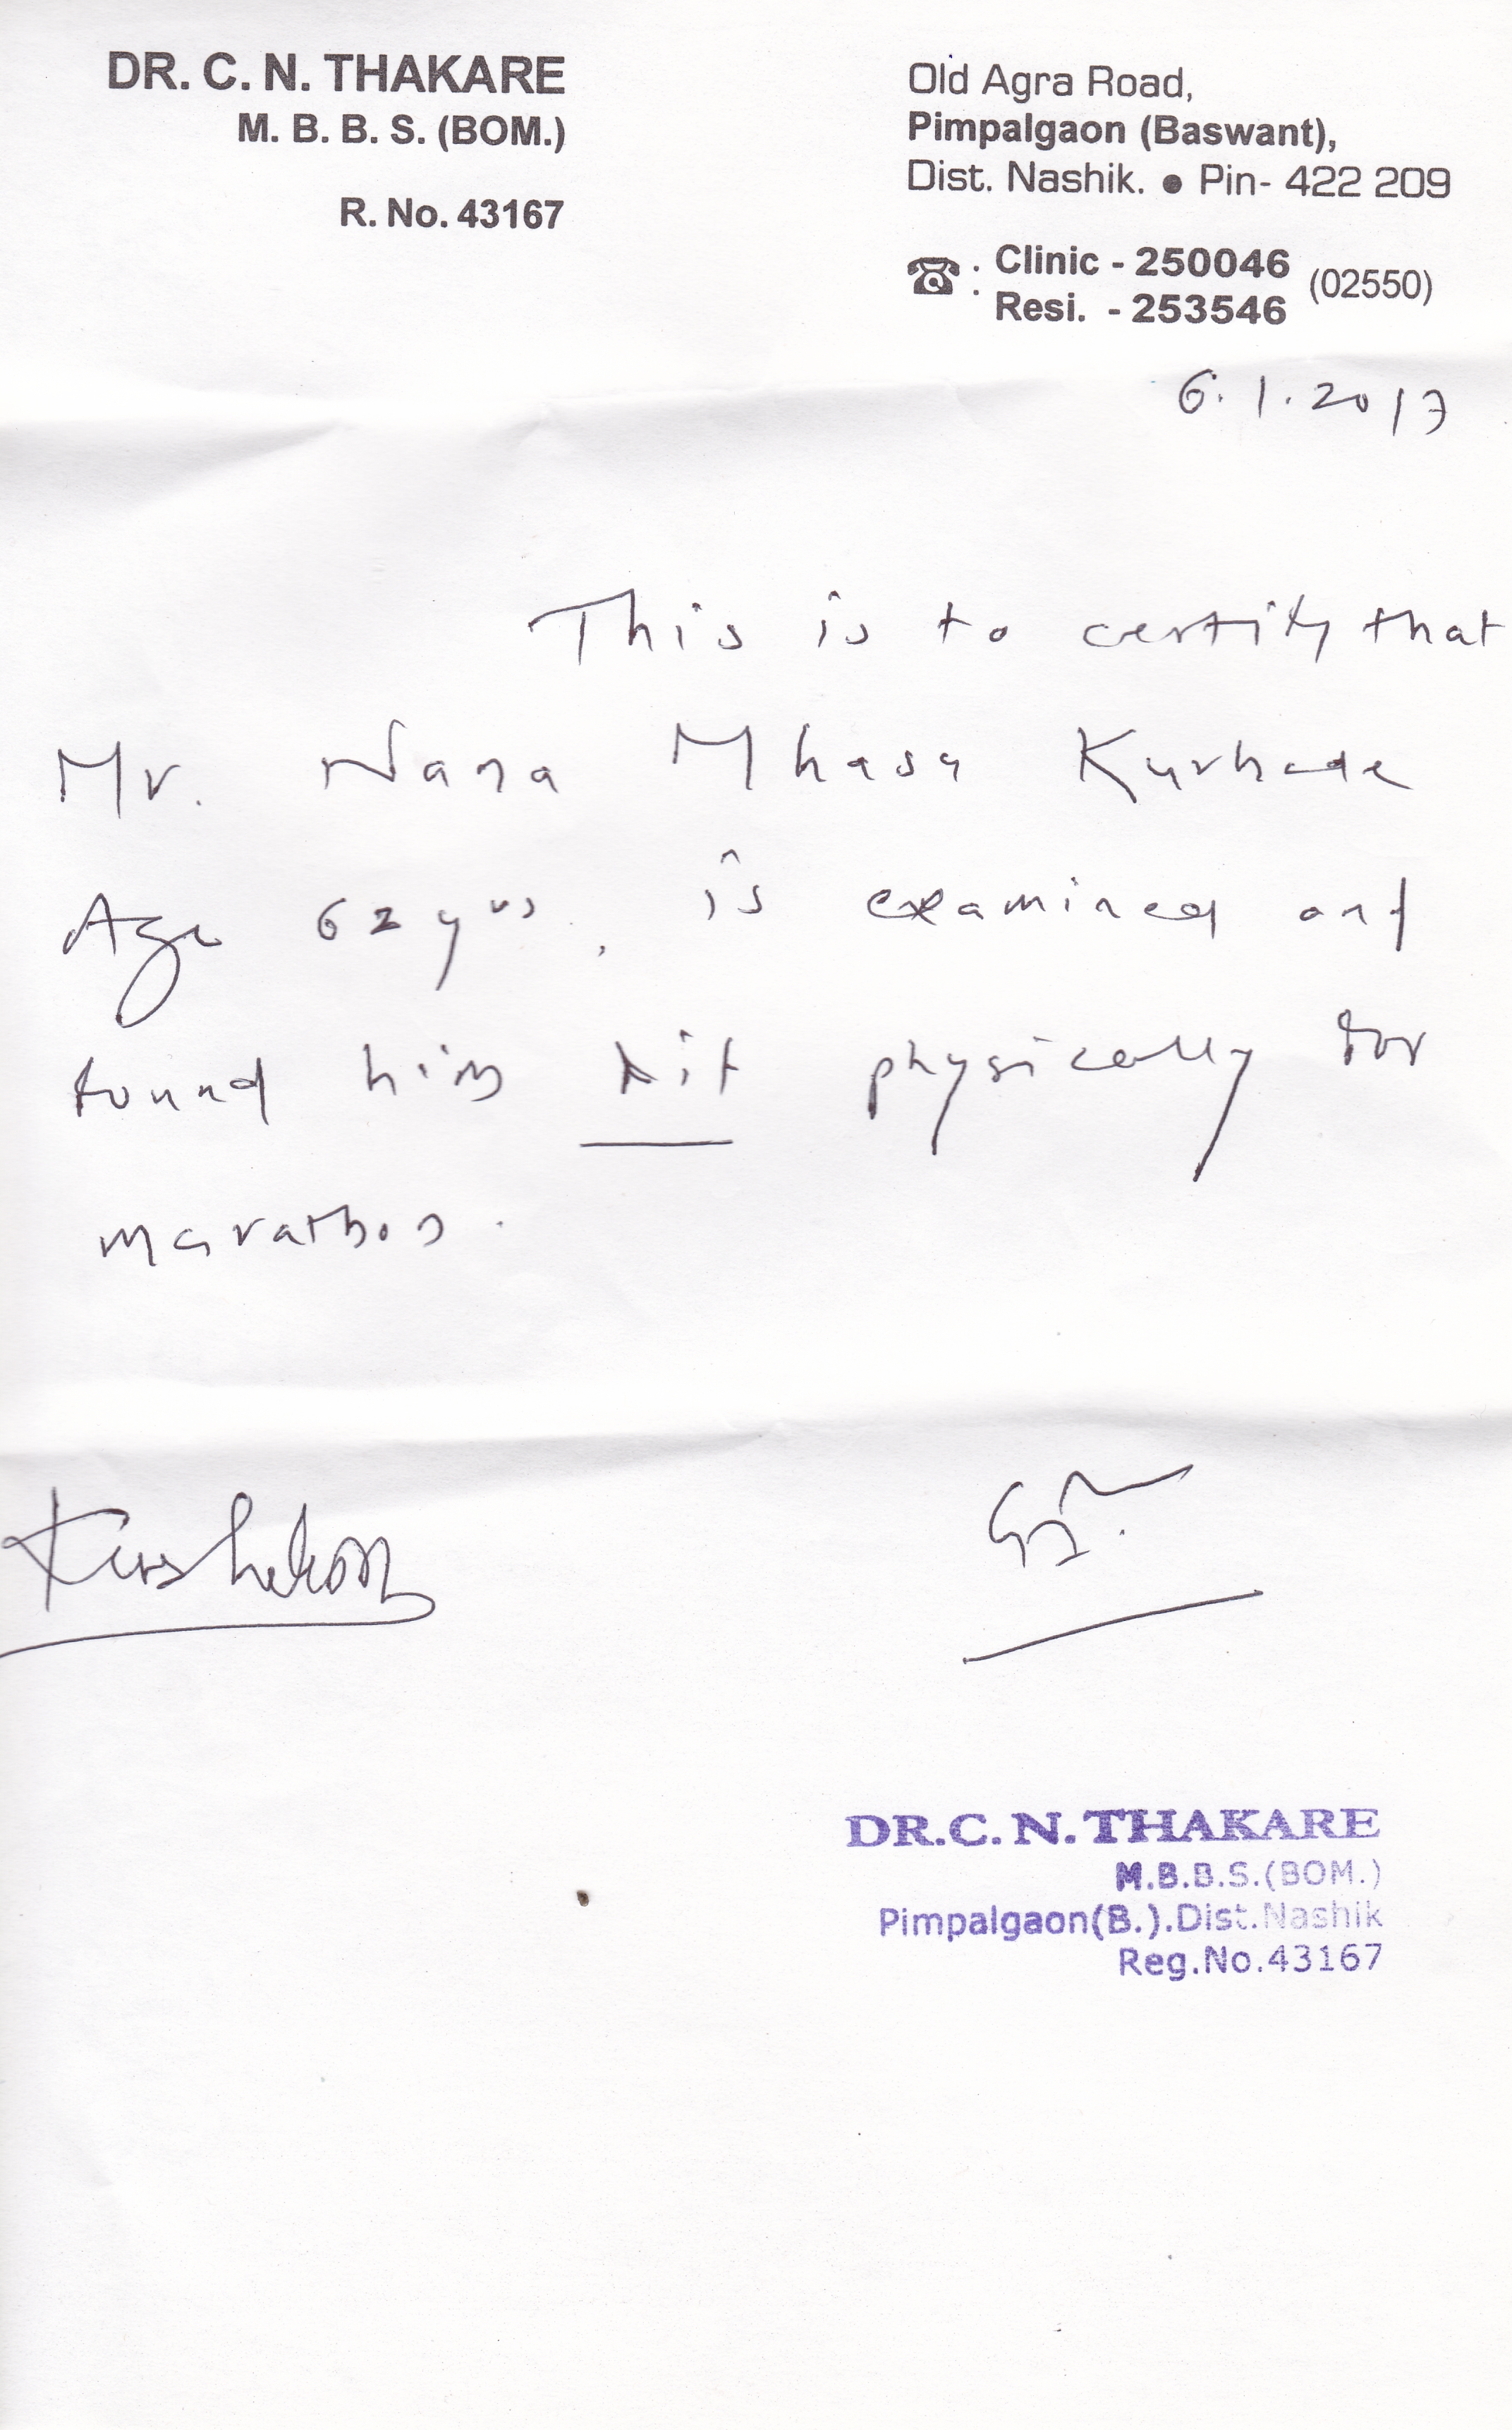 DR. C. N. THAKARE
M. B. B. S. (BOM.)
R. No. 43167
Old Agra Road,
Pimpalgaon (Baswant),
Dist. Nashik. ● Pin- 422 209
☎ : Clinic - 250046 (02550)
Resi. - 253546
6.1.2017
This is to certify that
Mr. Nana Mhasu Kurhade
Age 62 yrs, is examined and
found him fit physically for
marathon.
DR.C.N.THAKARE
M.B.B.S.(BOM.)
Pimpalgaon(B.).Dist.Nashik
Reg.No.43167